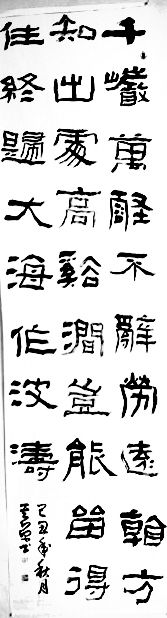 千巖萬壑不辭勞遠看方
知出處高谿澗豈能留得
住終歸大海作波濤
己丑年秋月